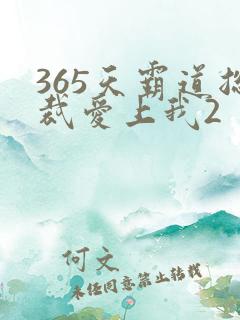 365天霸道总
裁爱上我2
何文
未经同意禁止转载